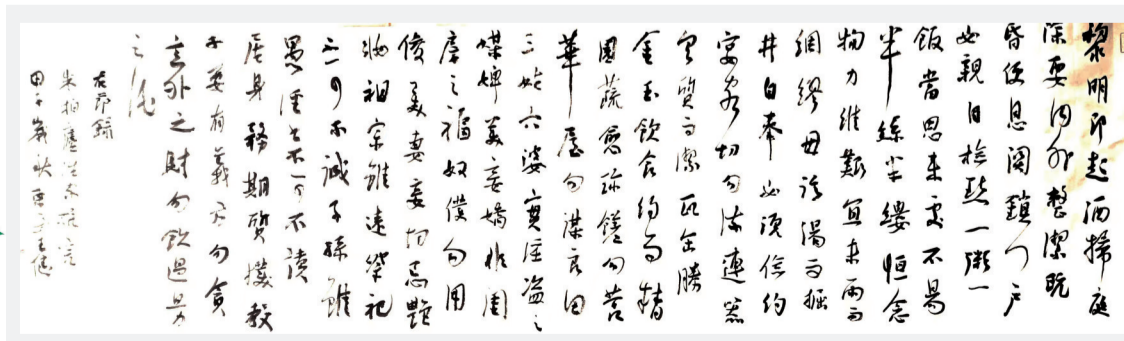 黎明即起洒掃庭
除要内外整潔既
昏便息関鎖門户
必親自檢點一粥一
飯當思来處不易
半絲半縷恒念
物力維艱宜未雨而
綢繆毋臨渴而掘
井自奉必須儉約
宴客切勿流連器
具質而潔瓦缶勝
金玉飲食約而精
園蔬愈珍饈勿營
華屋勿謀良田
三姑六婆實淫盗之
媒婢美妾嬌非閨
房之福奴僕勿用
俊美妻妾切忌艷
妝祖宗雖遠祭祀
不可不誠子孫雖
愚經書不可不讀
居身務期質樸教
子要有義方勿貪
意外之財勿飲過量
之酒
右節錄
朱柏廬治家格言
甲午歲秋